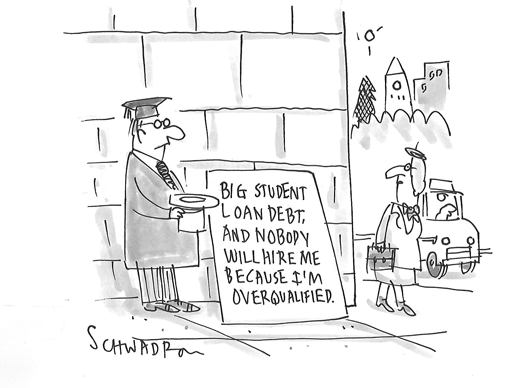 BIG STUDENT
LOAN DEBT,
AND NOBODY
WILL HIRE ME
BECAUSE I'M
OVERQUALIFIED.
SCHWADRON